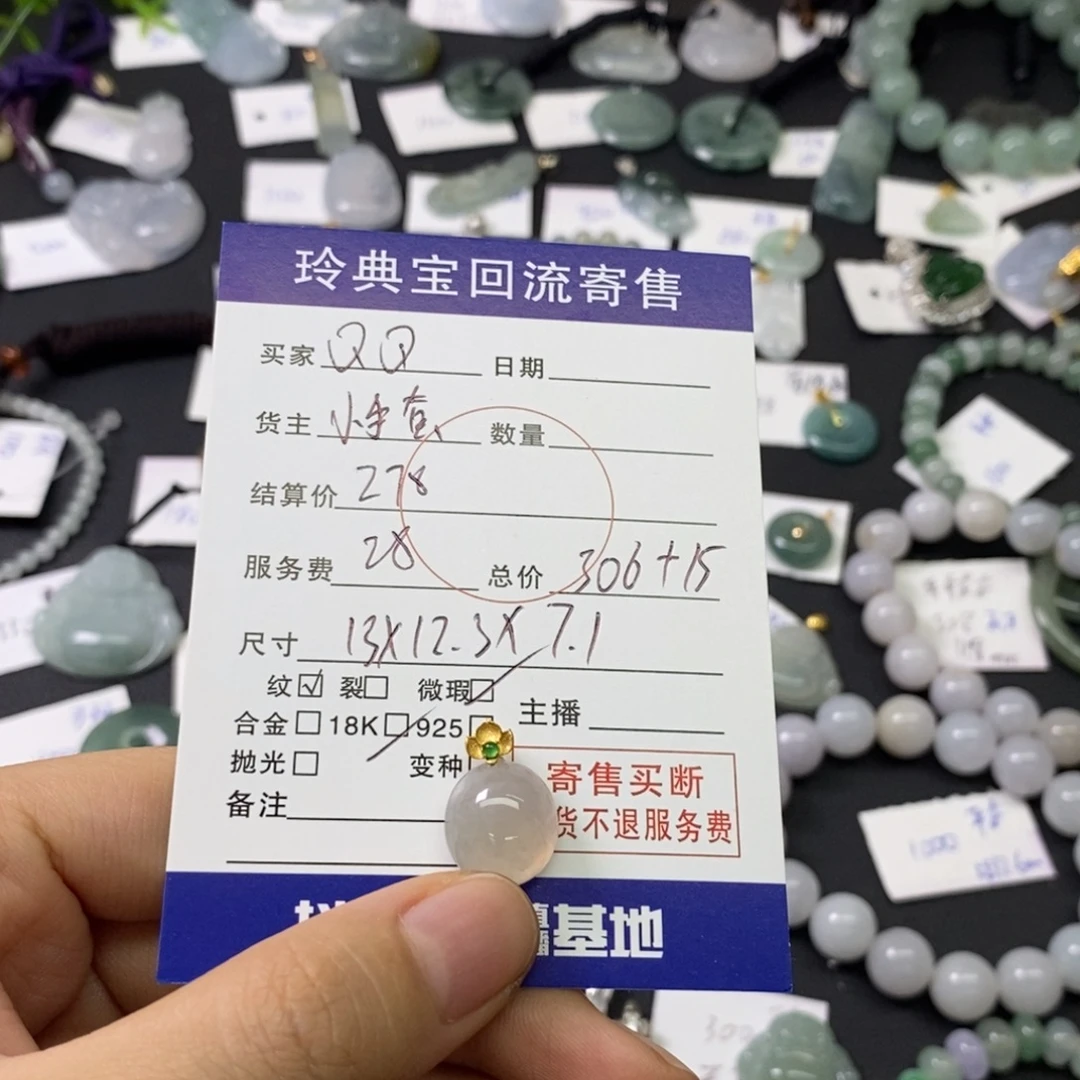 玲典宝回流寄售
买家 QQ 日期
货主 小手 数量
结算价 278
服务费 28 总价 306+15
尺寸 13X12.3X7.1
纹☑ 裂□ 微瑕□
合金□ 18K□ 925□ 主播
抛光□ 变种
备注
寄售买断
货不退服务费
基地